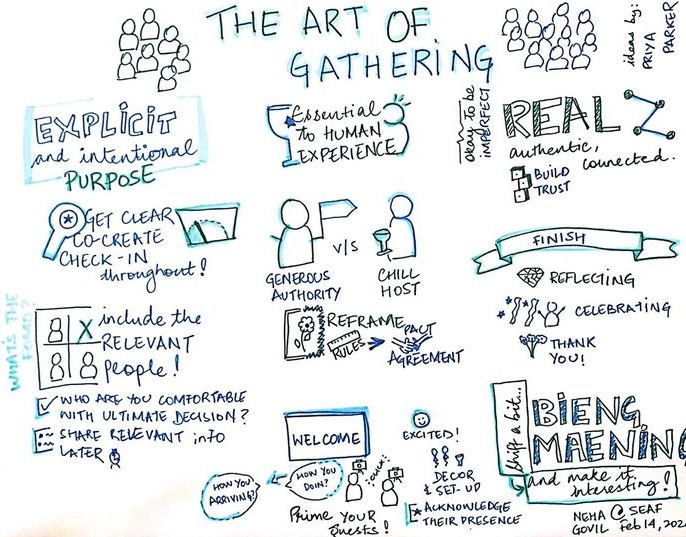 THE ART OF
GATHERING
ideas by:
PRIYA
PARKER
EXPLICIT
and intentional
PURPOSE
Essential
to HUMAN
EXPERIENCE
okay to be
IMPERFECT
REAL
authentic,
connected.
BUILD
TRUST
GET CLEAR
CO-CREATE
CHECK-IN
throughout!
GENEROUS
AUTHORITY
V/S
CHILL
HOST
FINISH
REFLECTING
CELEBRATING
THANK
YOU!
WHATS THE
FOMO?
X
include the
RELEVANT
people!
WHO ARE YOU COMFORTABLE
WITH ULTIMATE DECISION?
SHARE RELEVANT info
LATER
REFRAME
RULES
PACT
AGREEMENT
WELCOME
HOW YOU
ARRIVING?
HOW YOU
DOIN?
Prime YOUR
Guests!
EXCITED!
DECOR
& SET-UP
ACKNOWLEDGE
THEIR PRESENCE
Shift a bit...
BIENG
MAENING
and make it
interesting!
NEHA @ SEAF
GOVIL Feb 14, 202